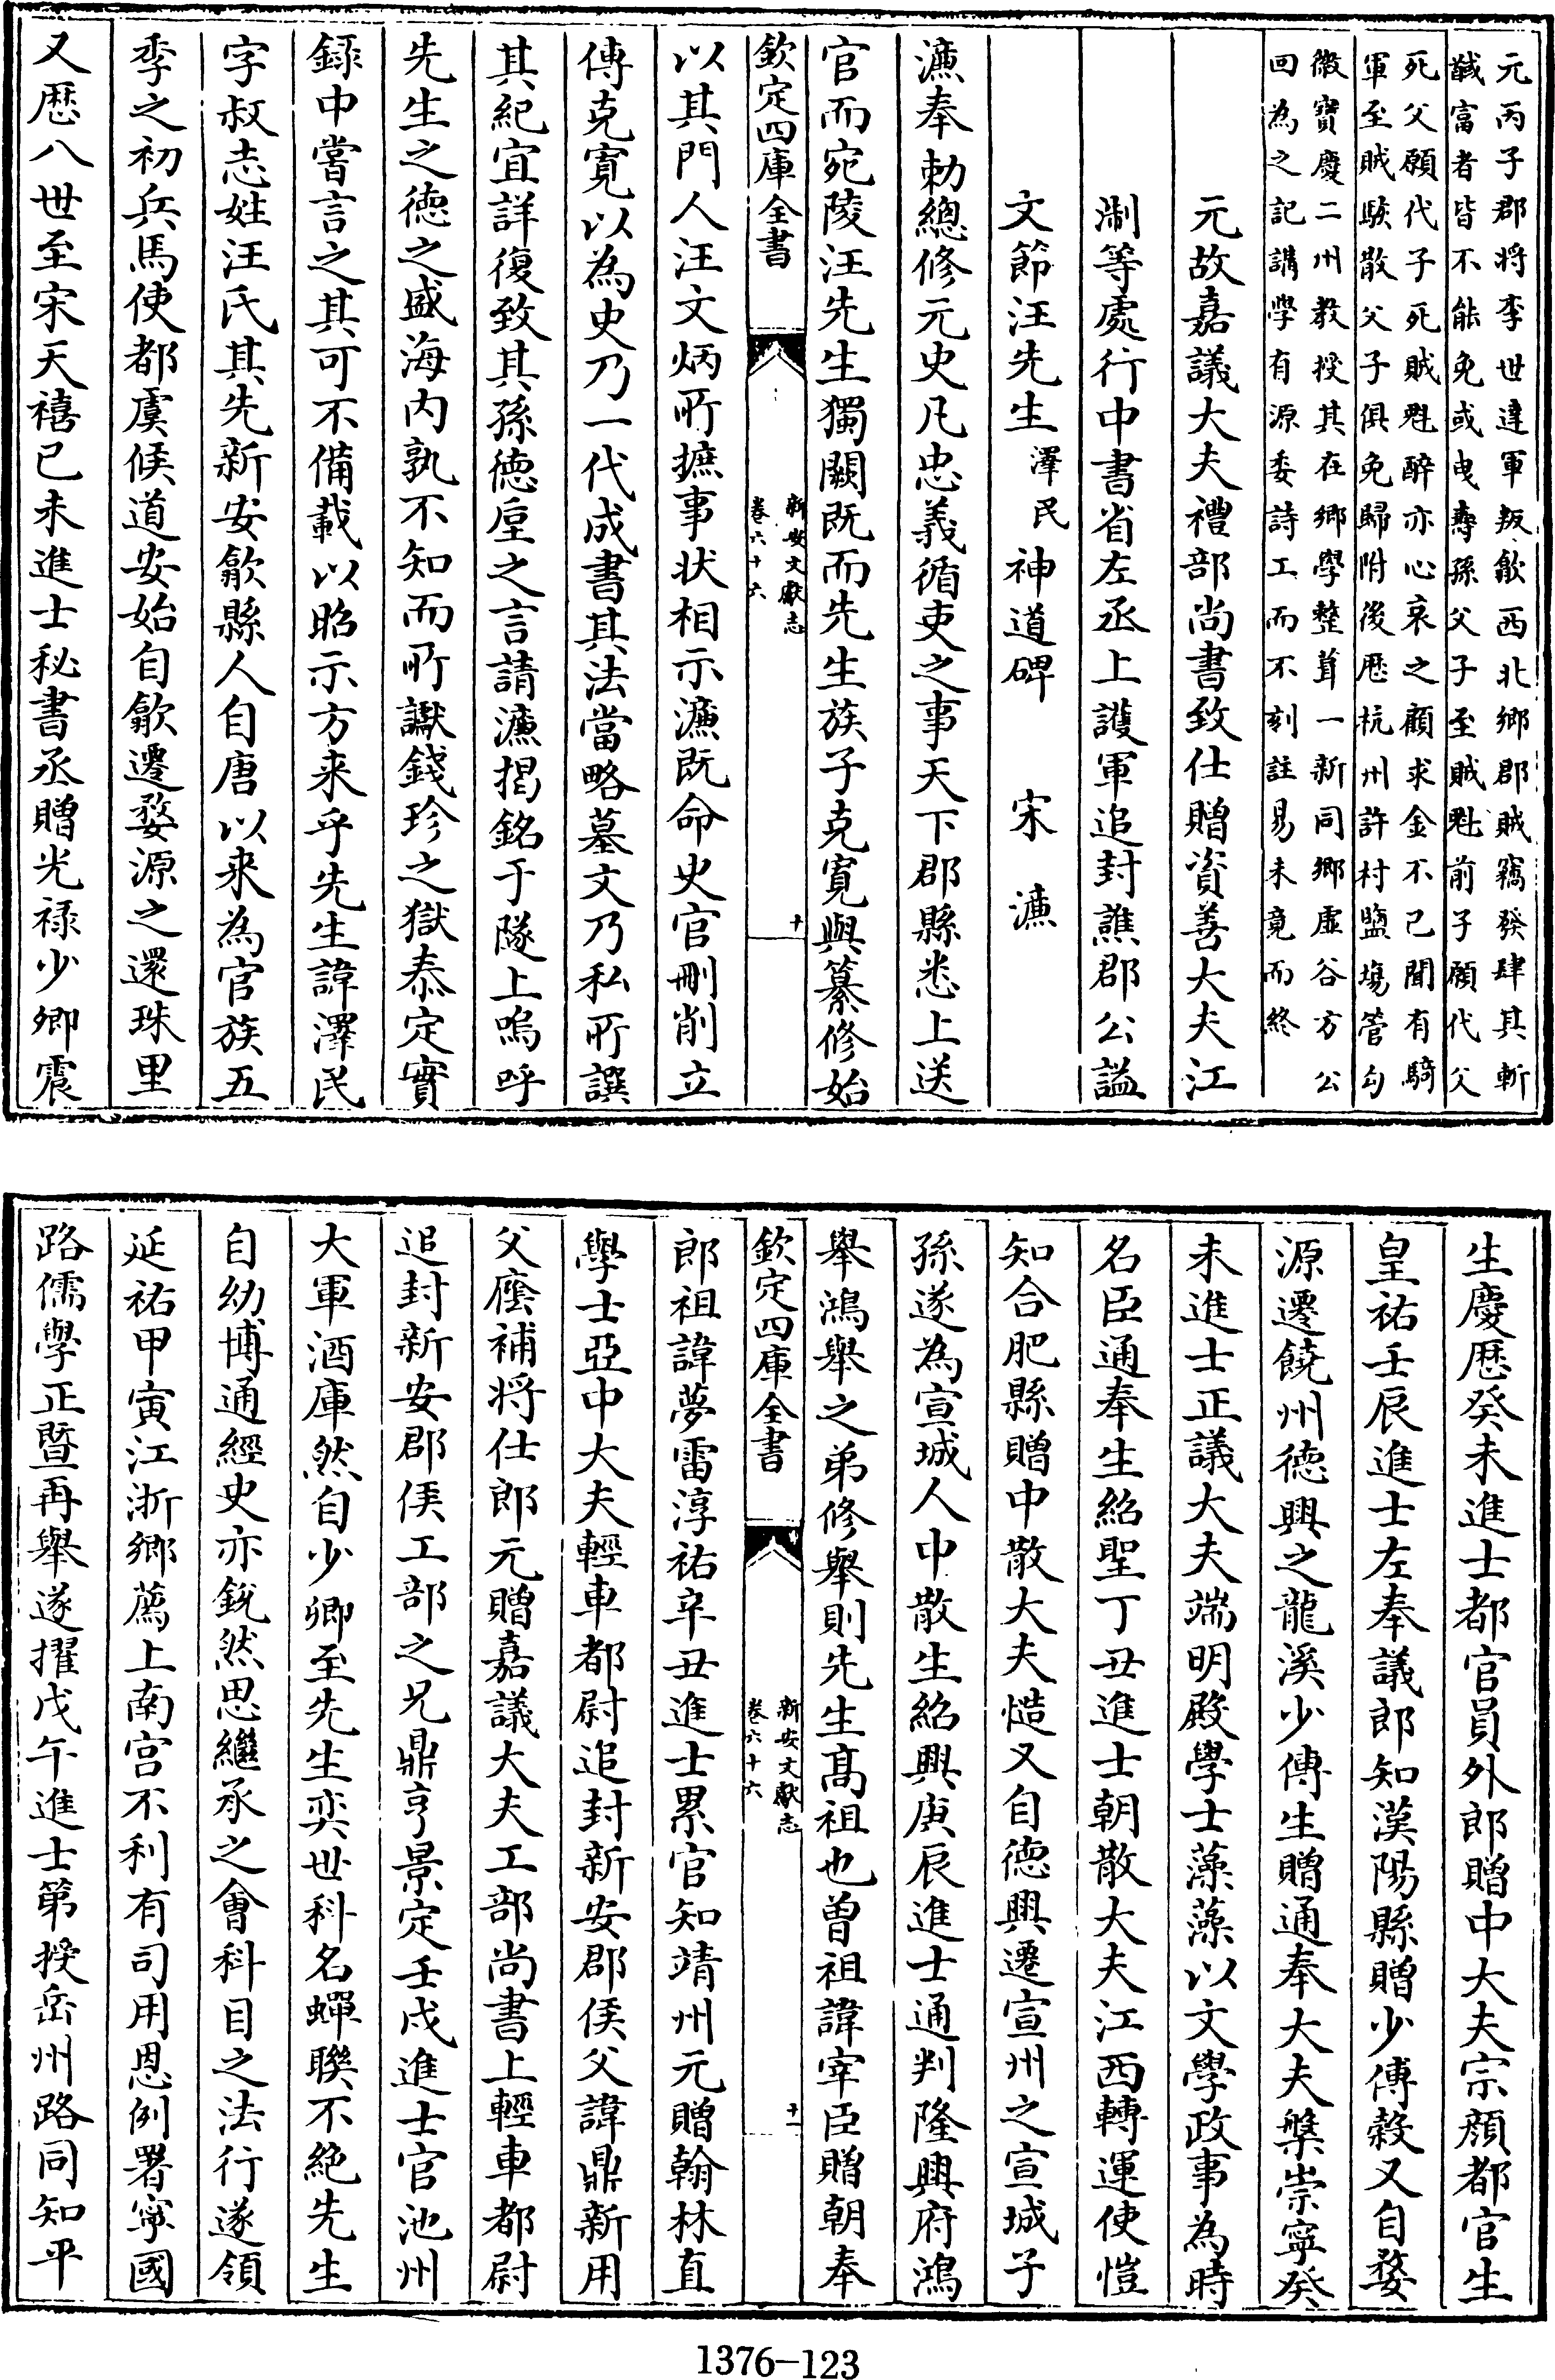 元丙子郡将李世達軍叛歙西北鄉郡賊竊發肆其斬
馘富者皆不能免或曳壽孫父子至賊魁前子願代父
死父願代子死賊魁醉亦心哀之顧求金不已聞有騎
軍至賊駭散父子俱免歸附後歴杭州許村鹽塲管勾
徽寳慶二州教授其在鄉學整葺一新同鄉虚谷方公
回為之記講學有源委詩工而不刻註易未竟而終
元故嘉議大夫禮部尚書致仕贈資善大夫江
淛等處行中書省左丞上護軍追封譙郡公謚
文節汪先生澤民神道碑　宋濂
濂奉勅總修元史凡忠義循吏之事天下郡縣悉上送
官而宛陵汪先生獨闕既而先生族子克寛與纂修始
欽定四庫全書
新安文獻志
卷六十六
十
以其門人汪文炳所摭事状相示濂既命史官刪削立
傳克寛以為史乃一代成書其法當略墓文乃私所譔
其紀宜詳復致其孫徳垕之言請濂掲銘于隧上嗚呼
先生之徳之盛海内孰不知而所讞錢珍之獄泰定實
録中嘗言之其可不備載以昭示方来乎先生諱澤民
字叔志姓汪氏其先新安歙縣人自唐以来為官族五
季之初兵馬使都虞候道安始自歙遷婺源之還珠里
又歴八世至宋天禧已未進士秘書丞贈光禄少卿震
生慶歴癸未進士都官員外郎贈中大夫宗顔都官生
皇祐壬辰進士左奉議郎知漢陽縣贈少傅榖又自婺
源遷饒州徳興之龍溪少傅生贈通奉大夫槃崇寧癸
未進士正議大夫端明殿學士藻藻以文學政事為時
名臣通奉生紹聖丁丑進士朝散大夫江西轉運使愷
知合肥縣贈中散大夫慥又自徳興遷宣州之宣城子
孫遂為宣城人中散生紹興庚辰進士通判隆興府鴻
舉鴻舉之弟修舉則先生髙祖也曽祖諱宰臣贈朝奉
欽定四庫全書
新安文獻志
卷六十六
十一
郎祖諱夢雷淳祐辛丑進士累官知靖州元贈翰林直
學士亞中大夫輕車都尉追封新安郡侯父諱鼎新用
父廕補将仕郎元贈嘉議大夫工部尚書上輕車都尉
追封新安郡侯工部之兄鼎亨景定壬戌進士官池州
大軍酒庫然自少卿至先生奕世科名蟬聯不絶先生
自幼博通經史亦銳然思繼承之會科目之法行遂領
延祐甲寅江浙鄉薦上南宫不利有司用恩例署寧國
路儒學正暨再舉遂擢戊午進士第授岳州路同知平
1376-123